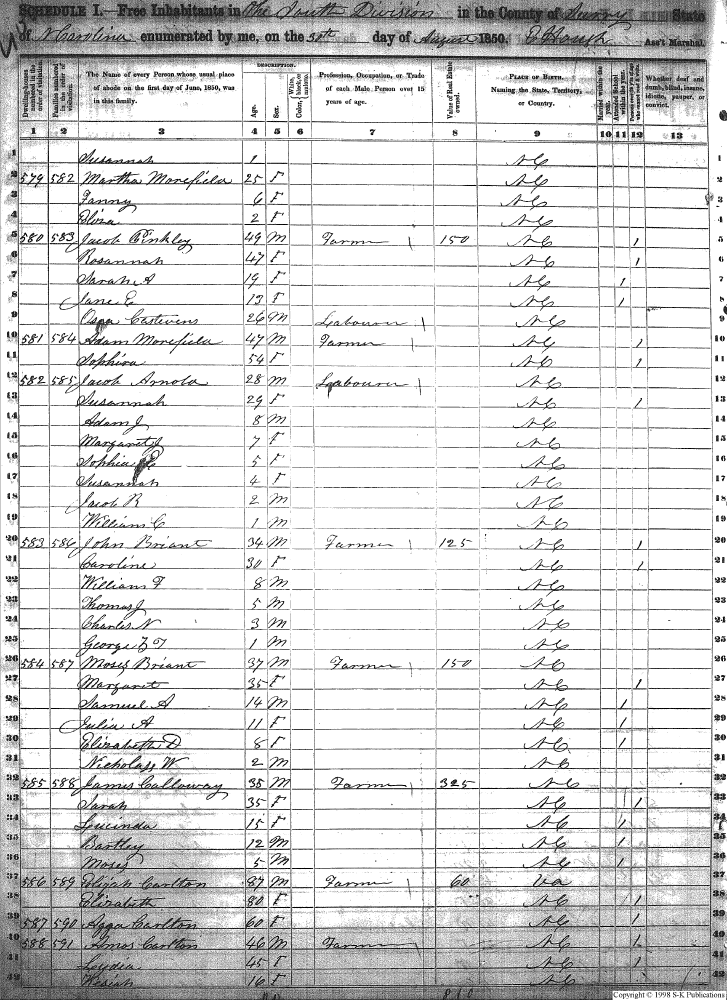 SCHEDULE I.—Free Inhabitants in The South Division in the County of Surry State
of N Carolina enumerated by me, on the 30th day of August 1850. E Hough Ass't Marshal.
Dwelling-houses numbered in the order of visitation.
Families numbered in the order of visitation.
The Name of every Person whose usual place of abode on the first day of June, 1850, was in this family.
DESCRIPTION.
Age.
Sex.
Color, {White, black, or mulatto.
Profession, Occupation, or Trade of each Male Person over 15 years of age.
Value of Real Estate owned.
PLACE OF BIRTH. Naming the State, Territory, or Country.
Married within the year.
Attended School within the year.
Whether deaf and dumb, blind, insane, idiotic, pauper, or convict.
1 2 3 4 5 6 7 8 9 10 11 12 13
1 Susannah 1 NC 1
2 579 582 Martha Morefield 25 F NC 2
3 Fanny 6 F NC 3
4 Eliza 2 F NC 4
5 580 583 Jacob Binkley 49 M Farmer 150 NC 1 5
6 Rosannah 47 F NC 1 6
7 Sarah A 19 F NC 1 7
8 Jane E 13 F NC 1 8
9 Castevens 26 M Labourer NC 9
10 581 584 Adam Morefield 47 M Farmer NC 1 10
11 Sophira 54 F NC 1 11
12 582 585 Jacob Arnold 28 M Labourer NC 12
13 Susannah 29 F NC 1 13
14 Adam J 8 M NC 14
15 Margaret J 7 F NC 15
16 Sophia E 5 F NC 16
17 Susannah 4 F NC 17
18 Jacob R 2 M NC 18
19 William C 1 M NC 19
20 583 586 John Briant 34 M Farmer 125 NC 1 20
21 Caroline 30 F NC 1 21
22 William F 8 M NC 22
23 Thomas J 5 M NC 23
24 Charles N 3 M NC 24
25 George Z T 1 M NC 25
26 584 587 Moses Briant 37 M Farmer 150 NC 26
27 Margaret 35 F NC 1 27
28 Samuel A 14 M NC 1 28
29 Julia A 11 F NC 1 29
30 Elizabeth D 8 F NC 1 30
31 Nicholass W 2 M NC 31
32 585 588 James Calloway 38 M Farmer 325 NC 32
33 Sarah 35 F NC 1 33
34 Lucinda 15 F NC 1 34
35 Bartley 12 M NC 1 35
36 Moses 5 M NC 1 36
37 586 589 Elijah Carlton 87 M Farmer 60 Va 37
38 Elizabeth 80 F NC 1 38
39 587 590 Agga Carlton 60 F NC 1 39
40 588 591 Amos Carlton 46 M Farmer NC 1 40
41 Lydia 45 F NC 1 41
42 16 F NC 1 42
Copyright © 1998 S-K Publications